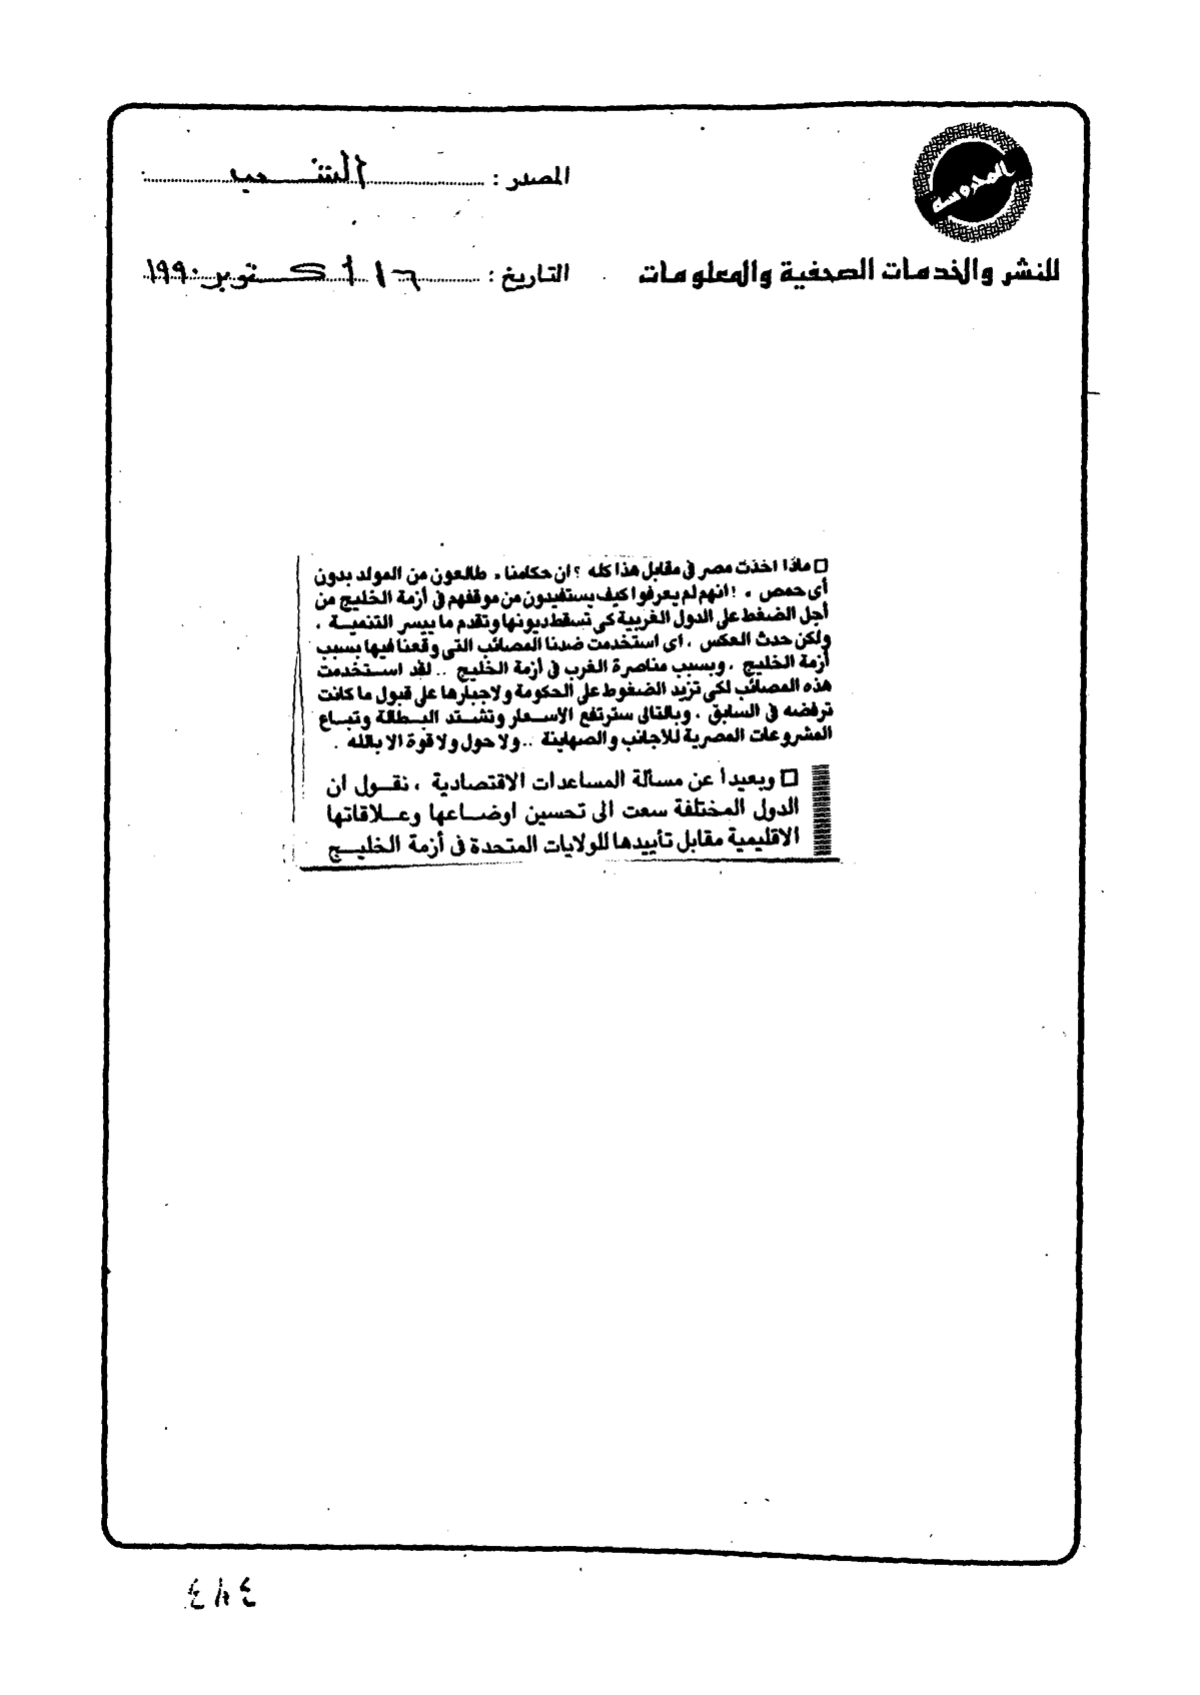 المحروسة
المصدر : الشعب
للنشر والخدمات الصحفية والمعلومات
التاريخ : ١٦ أكتوبر ١٩٩٠
□ ماذا اخذت مصر فى مقابل هذا كله ؟ ان حكامنا ، طالعون من المولد بدون
أى حمص ، ! انهم لم يعرفوا كيف يستفيدون من موقفهم فى أزمة الخليج من
أجل الضغط على الدول الغربية كى تسقط ديونها وتقدم ما ييسر التنميـة ،
ولكن حدث العكس ، اى استخدمت ضدنا المصائب التى وقعنا فيها بسبب
أزمة الخليج ، وبسبب مناصرة الغرب فى أزمة الخليج .. لقد استـخدمت
هذه المصائب لكى تزيد الضغوط على الحكومة ولاجبارها على قبول ما كانت
ترفضه فى السابق ، وبالتالى سترتفع الأسـعار وتشـتد البـطالة وتبـاع
المشروعات المصرية للأجانب والصهاينة .. ولا حول ولا قوة الا بالله .
□ وبعيداً عن مسألة المساعدات الاقتصادية ، نقـول ان
الدول المختلفة سعت الى تحسين اوضـاعها وعـلاقاتها
الاقليمية مقابل تأييدها للولايات المتحدة فى أزمة الخليـج
٤٨٤